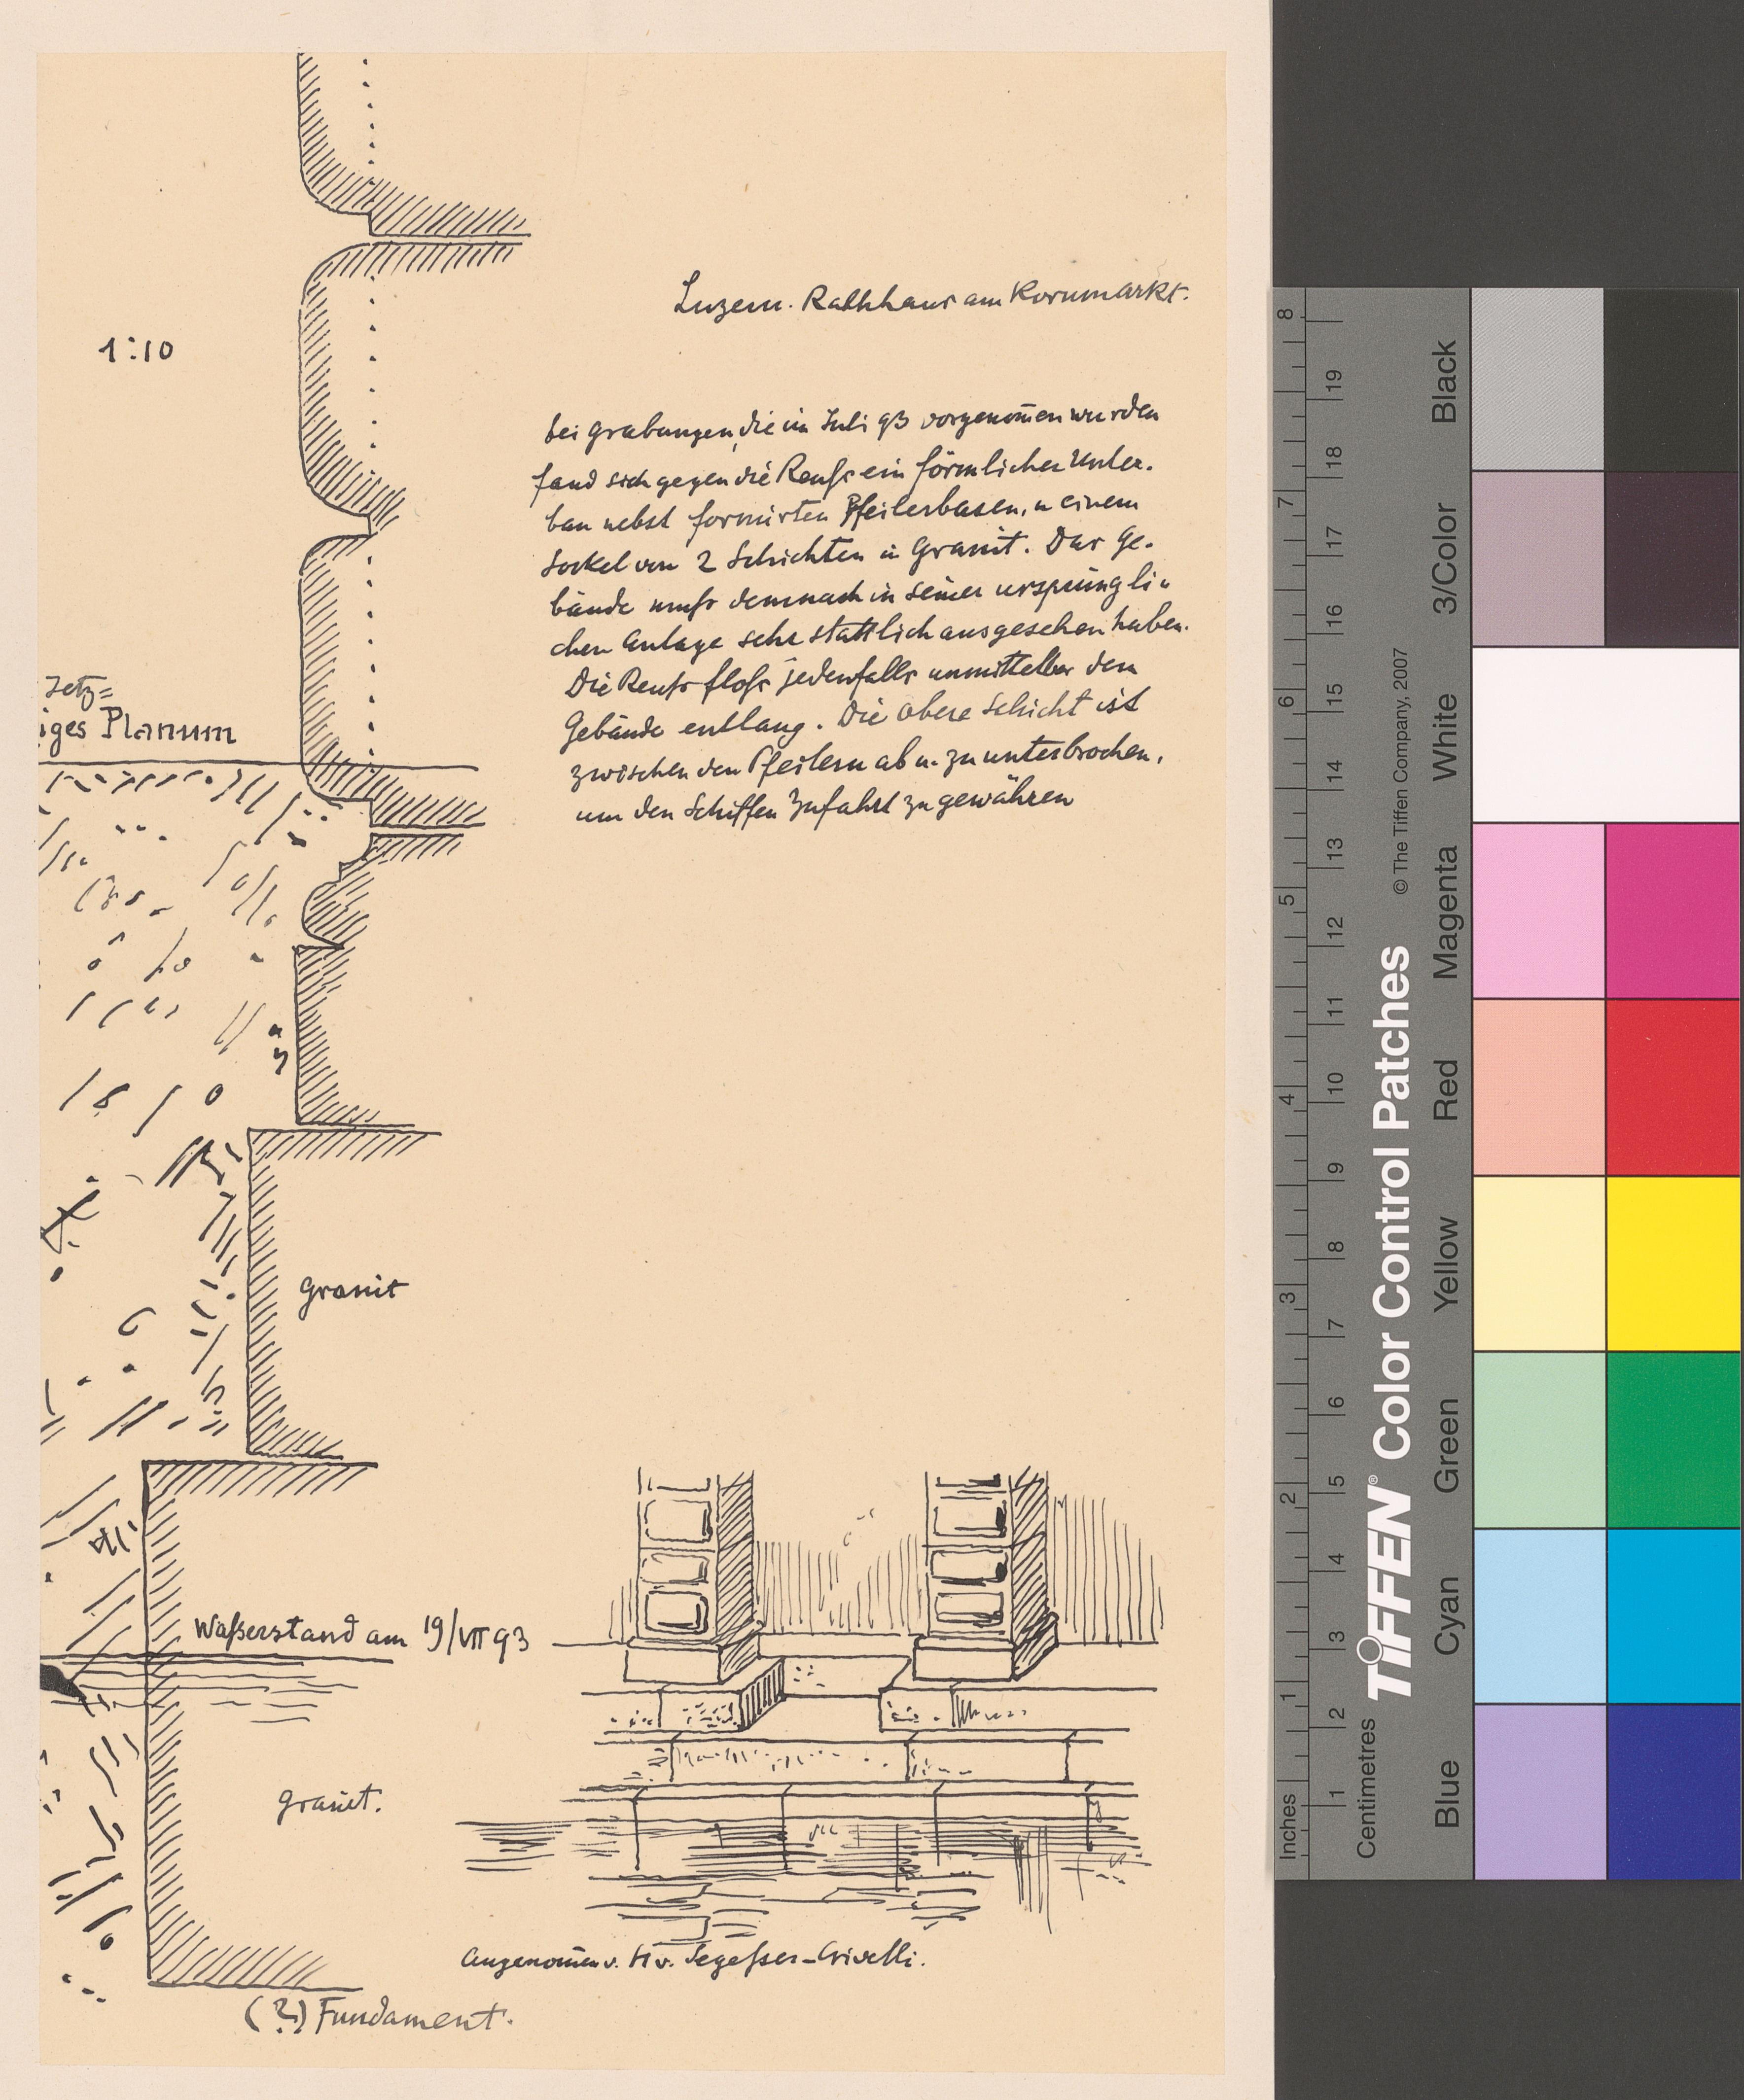 Luzern. Rathhaus am Kornmarkt.
1:10
bei Grabungen, die im Juli 93 vorgenom̄en wurden
fand sich gegen die Reuss ein förmlicher Unter-
bau nebst formirten Pfeilerbasen, u einem
Sockel von 2 Schichten in Granit. Das Ge-
bäude muss demnach in seiner ursprüngli-
chen Anlage sehr stattlich ausgesehen haben.
Die Reuss floss jedenfalls unmittelbar dem
Gebäude entlang. Die obere Schicht ist
zwischen den Pfeilern ab u. zu unterbrochen,
um den Schiffen Zufahrt zu gewähren
Jetz=
iges Planum
Granit
Waßerstand am 19/VII 93
Granit.
Angenom̄en v. H v. Segeßer-Crivelli.
(?) Fundament.
Inches
1
2
3
4
5
6
7
8
Centimetres
1
2
3
4
5
6
7
8
9
10
11
12
13
14
15
16
17
18
19
TIFFEN® Color Control Patches
© The Tiffen Company, 2007
Blue
Cyan
Green
Yellow
Red
Magenta
White
3/Color
Black